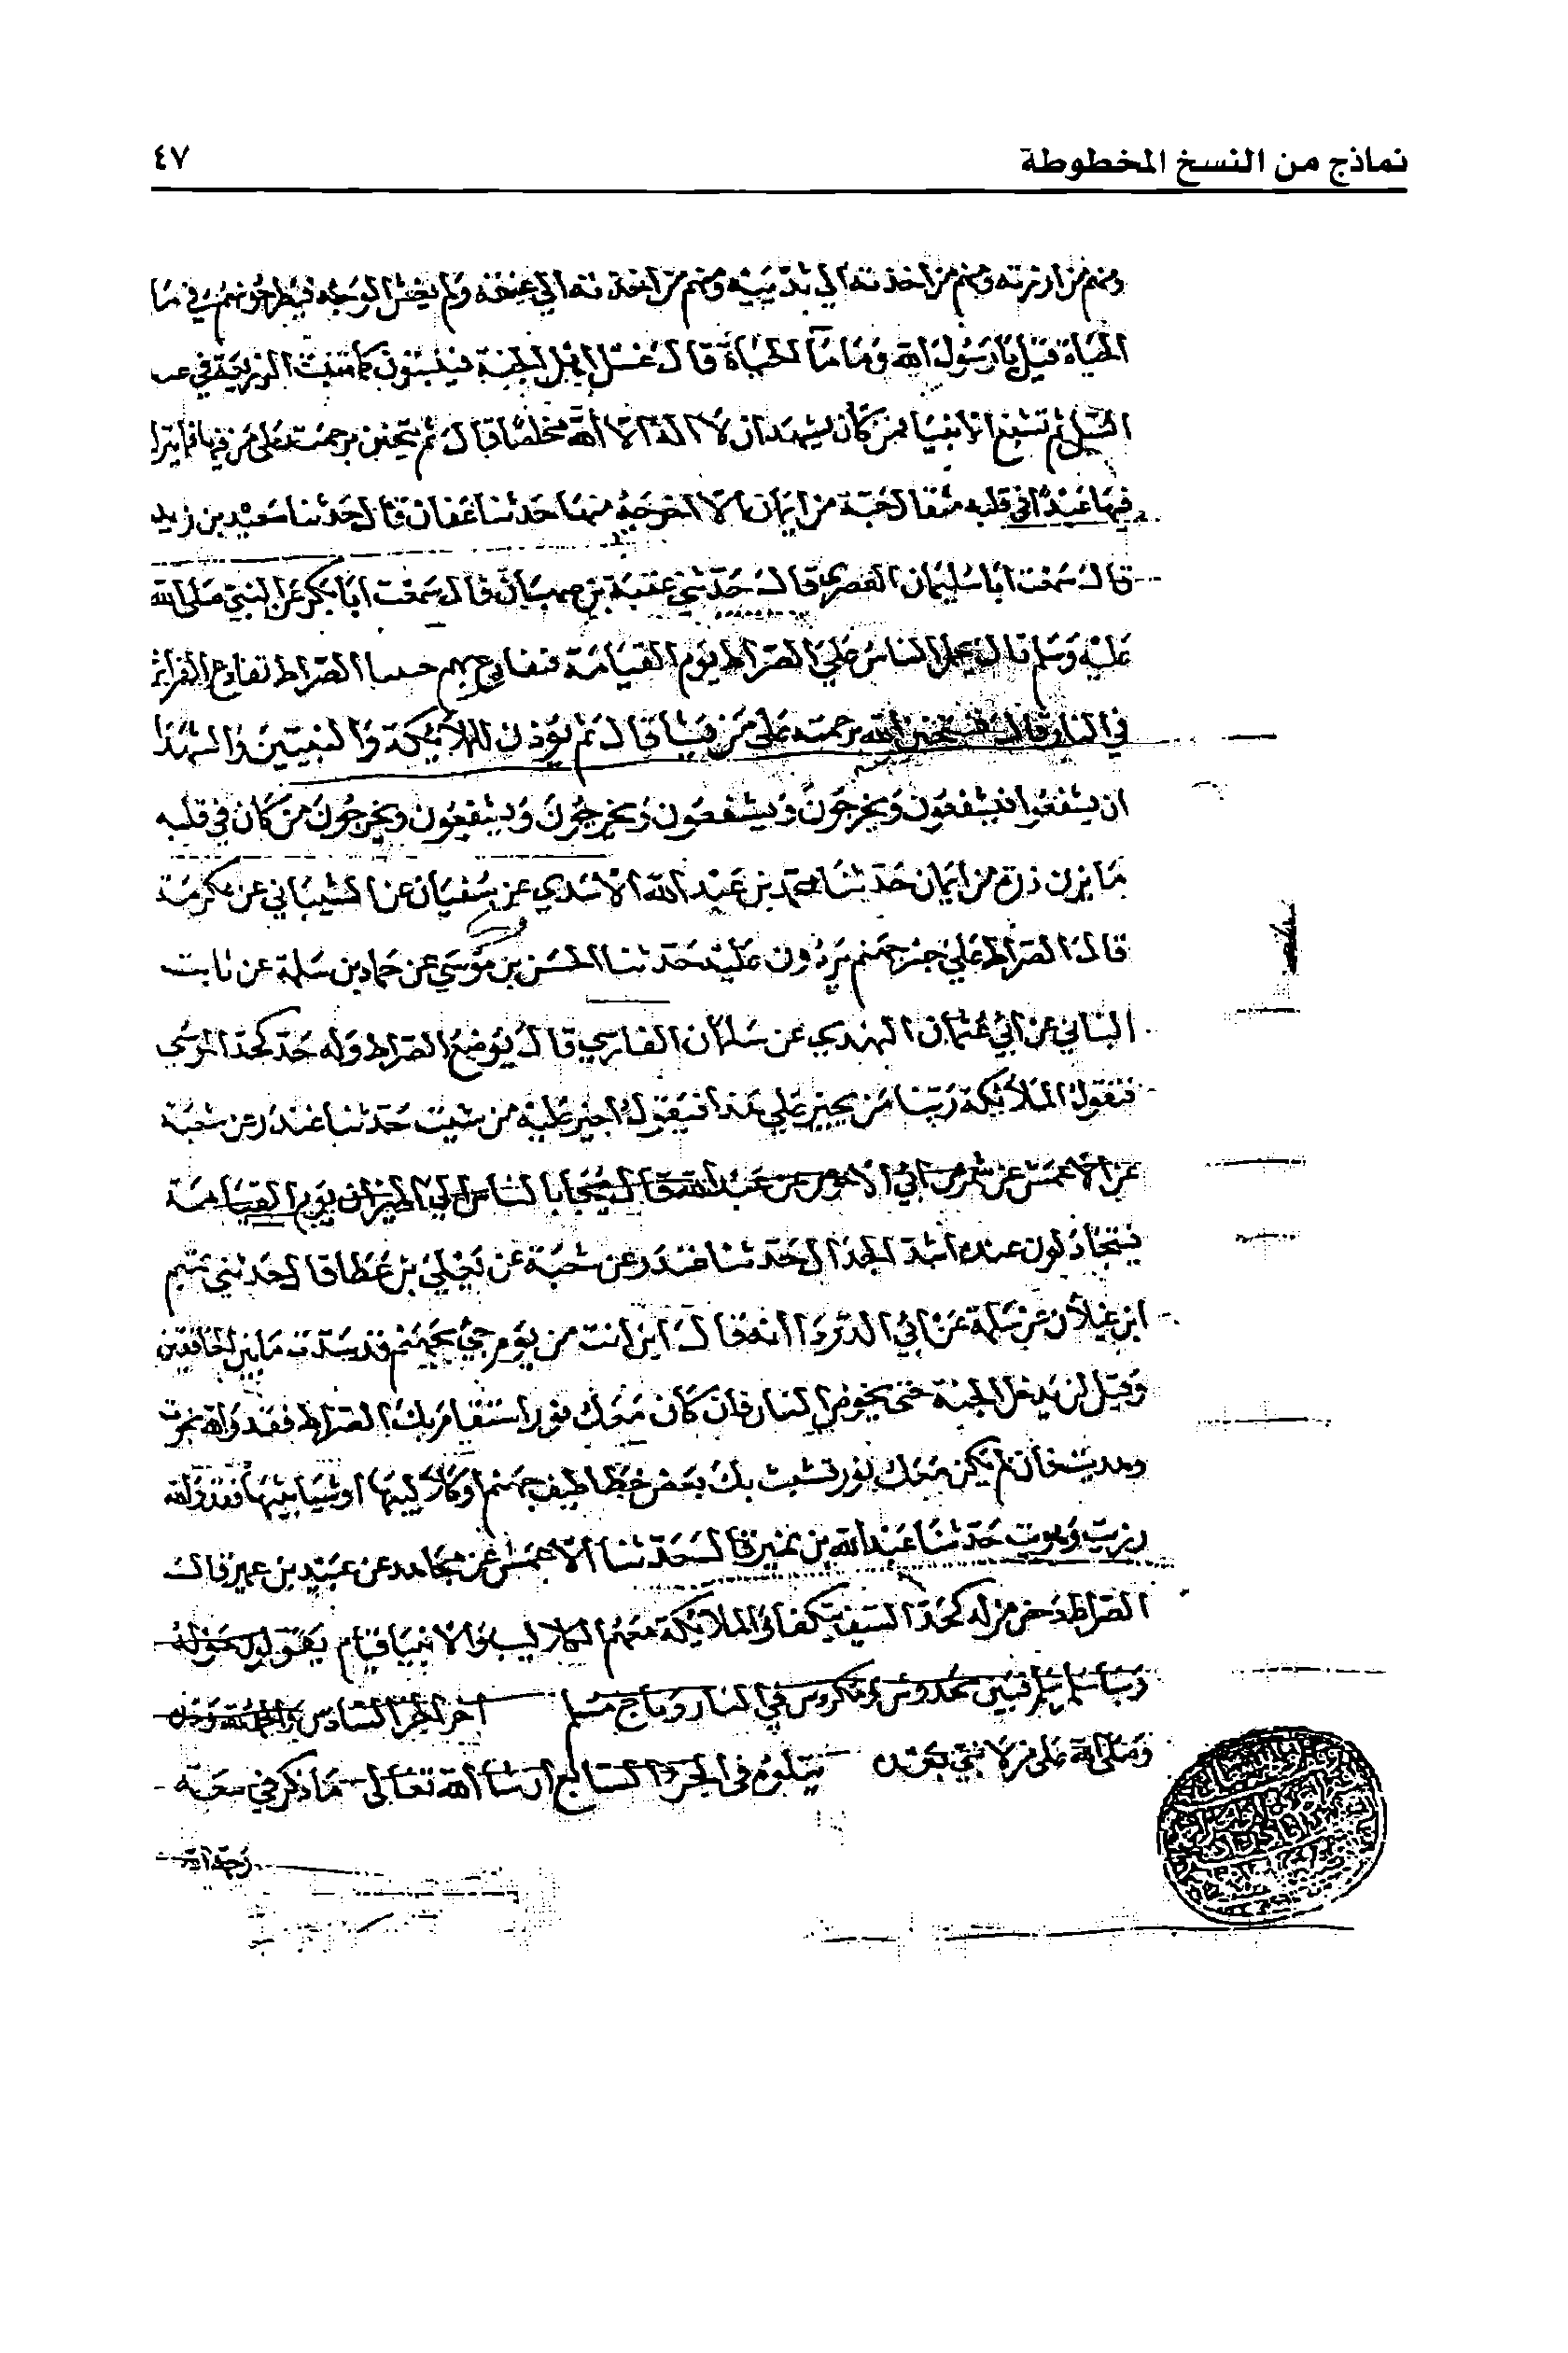 نماذج من النسخ المخطوطة ٤٧
ومنهم من ازرته ومنهم من اخذته الى ثدييه ومنهم من اخذته الى عنقه ولم يغش الوجه فيطرحونهم في ما
الحياة قيل يا رسول الله وما ما الحياة قال غسل اهل الجنة فينبتون كما تنبت الزريعة في
السيل ثم تشفع الانبيا لمن كان يشهد ان لا اله الا الله مخلصا قال ثم يتحنن برحمته على من فيها فما يترك
فيها عبدا في قلبه مثقال حبة من ايمان الا اخرجه منها حدثنا عفان قال حدثنا سعيد بن زيد
قال سمعت ابا سليمان العصري قال حدثني عقبة بن صهبان قال سمعت ابا بكرة عن النبي صلى الله
عليه وسلم قال يحمل الناس على الصراط يوم القيامة فتقادع بهم الصراط تقادع الفراش
في النار قال فيتحنن الله برحمته على من يشا قال ثم يوذن للملائكة والنبيين والشهدا
ان يشفعوا فيشفعون ويخرجون ويشفعون ويخرجون ويشفعون ويخرجون من كان في قلبه
ما يزن ذرة من ايمان حدثنا محمد بن عبد الله الاسدي عن سفيان عن الشيباني عن عكرمة
قال الصراط على جسر جهنم يردون عليه حدثنا الحسن بن موسى عن حماد بن سلمة عن ثابت
البناني عن ابي عثمان النهدي عن سلمان الفارسي قال يوضع الصراط وله حد كحد الموسى
فتقول الملائكة ربنا من يجيز على هذا فيقول اجيز عليه من شيت حدثنا غندر عن شعبة
عن الاعمش عن شمر عن ابي الاحوص عن عبد الله قال يجا بالناس الى الميزان يوم القيامة
فيتجادلون عنده اشد الجدال حدثنا غندر عن شعبة عن يعلى بن عطا قال حدثني تميم
ابن غيلان بن سلمة عن ابي الدردا انه قال اين انت من يوم جي بجهنم قد سدت ما بين الخافقين
وقيل لن تدخل الجنة حتى تخوض النار فان كان معك نور استقام بك الصراط فقد والله نجوت
وهديت فان لم يكن معك نور تشبث بك بعض خطاطيف جهنم او كلاليبها او شبابيثها فقد والله
رديت وهويت حدثنا عبد الله بن نمير قال حدثنا الاعمش عن مجاهد عن عبيد بن عمير قال
الصراط دحض مزلة كحد السيف يتكفا والملائكة معهم الكلاليب والانبيا قيام يقولون حوله
ربنا سلم سلم فبين مخدوش ومكروس في النار وناج مسلم اخر الجز السادس والحمد لله وحده
وصلى الله على من لا نبي بعده يتلوه في الجزء السابع ان شا الله تعالى ما ذكر في سعة
رحمة الله